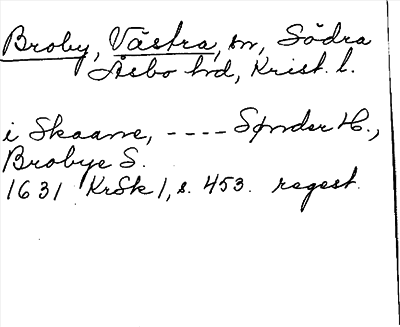 Broby, Västra, sn, Södra
Åsbo hd, Krist. l.
i Skaane, ---- Sønder H.,
Brobye S.
1631 KrSk 1, s. 453. regest.